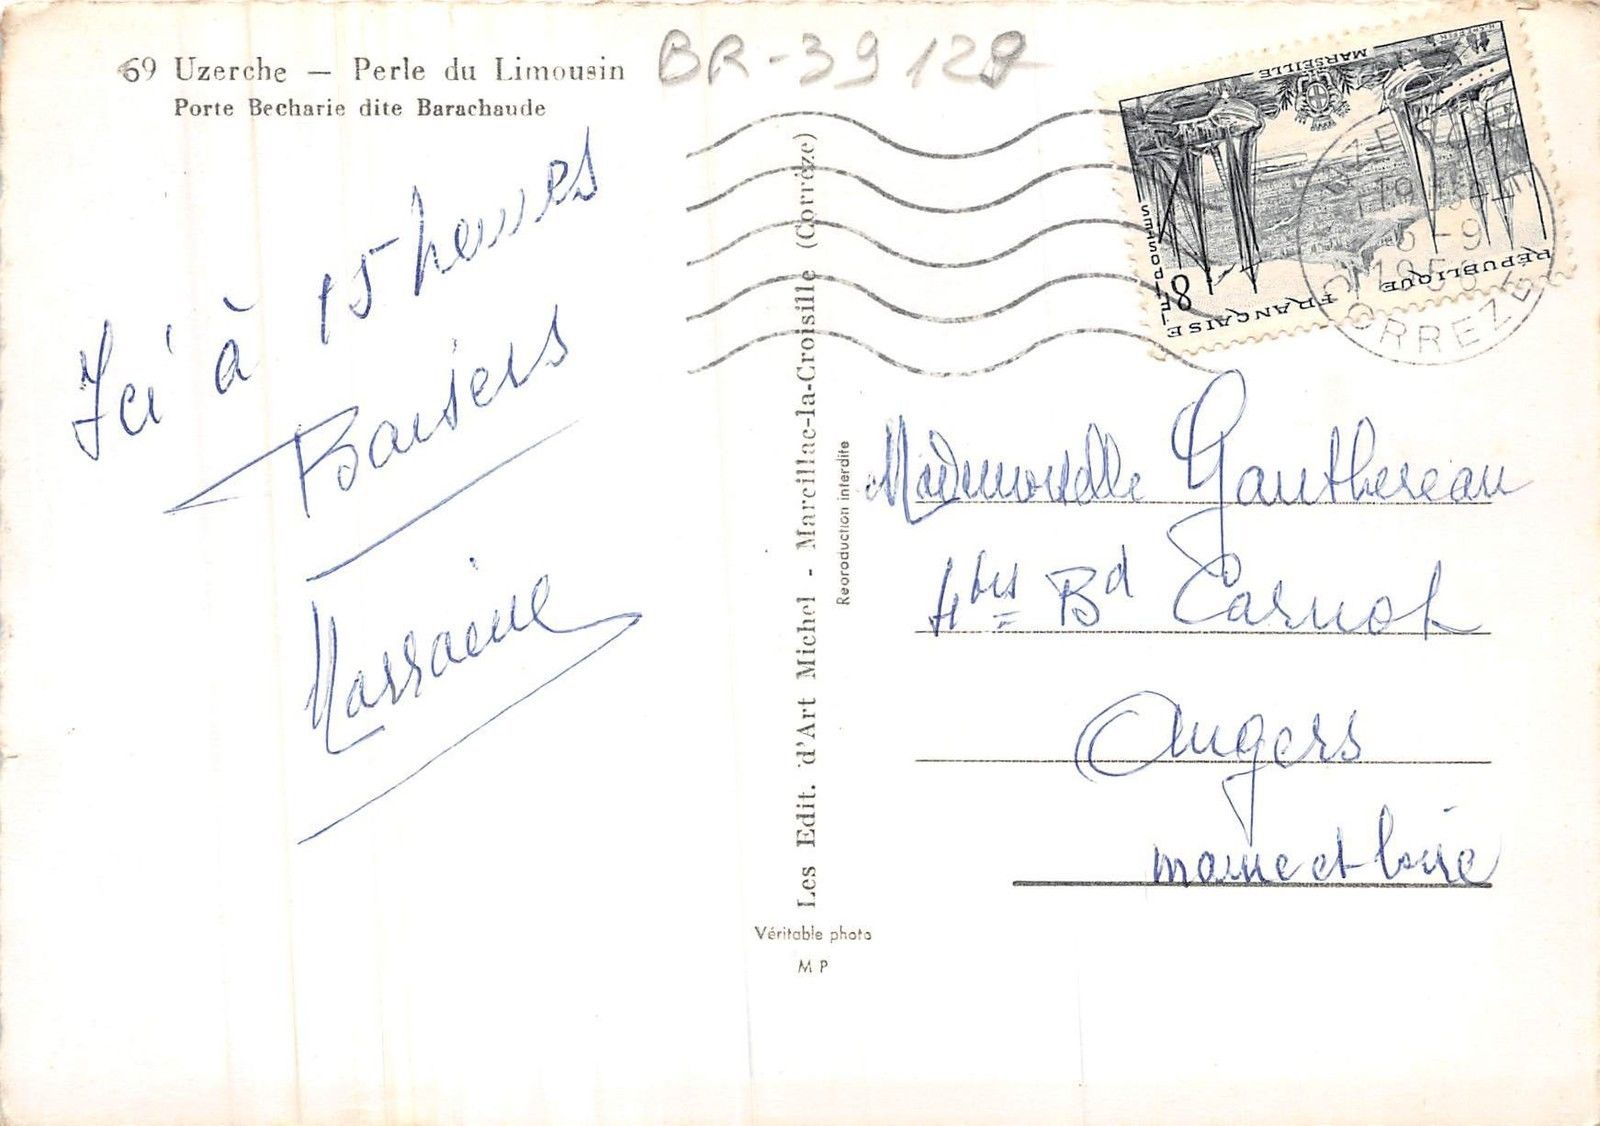 69 Uzerche — Perle du Limousin
Porte Becharie dite Barachaude
BR-39 128
Ici à 15 heures
Baisers
Marraine
Les Edit. d'Art Michel - Marcillac-la-Croisille (Corrèze)
Reproduction interdite
Véritable photo
M P
MARSEILLE
8F
POSTES
RÉPUBLIQUE FRANÇAISE
UZERCHE
1956
CORREZE
Mademoiselle Gauthereau
4bis Bd Carnot
Angers
maine et loire